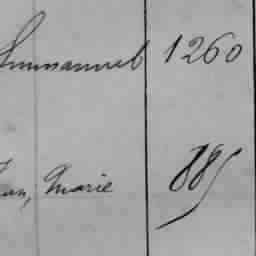 Emmanuel 1260
Jean, Marie 885